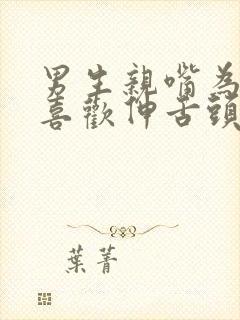 男生親嘴為
喜歡伸舌頭
葉菁